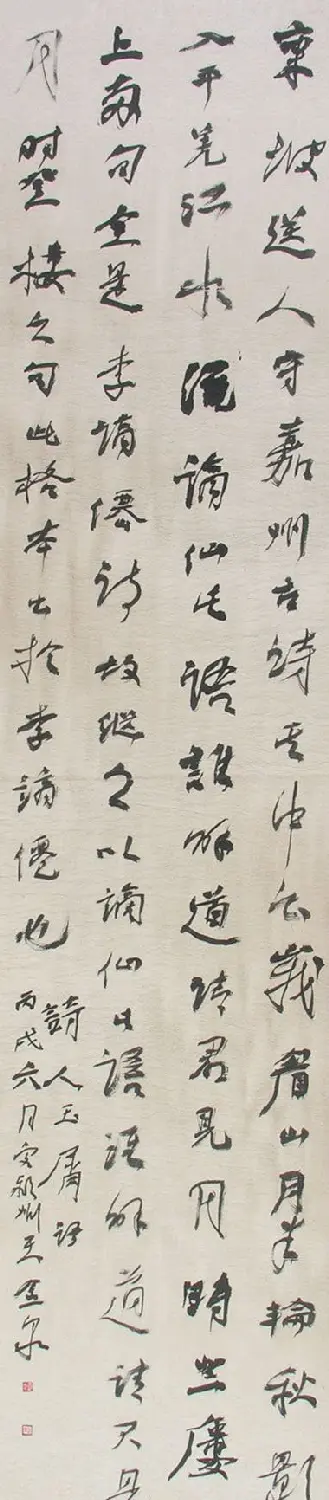 東坡送人守嘉州古詩其中云峨眉山月半輪秋影
入平羌江水流謫仙此語誰解道請君見月時登樓
上兩句全是李謫僊詩故繼之以謫仙此語誰解道請君見
月時登樓之句此格本出於李謫僊也
詩人玉屑語
丙戌六月